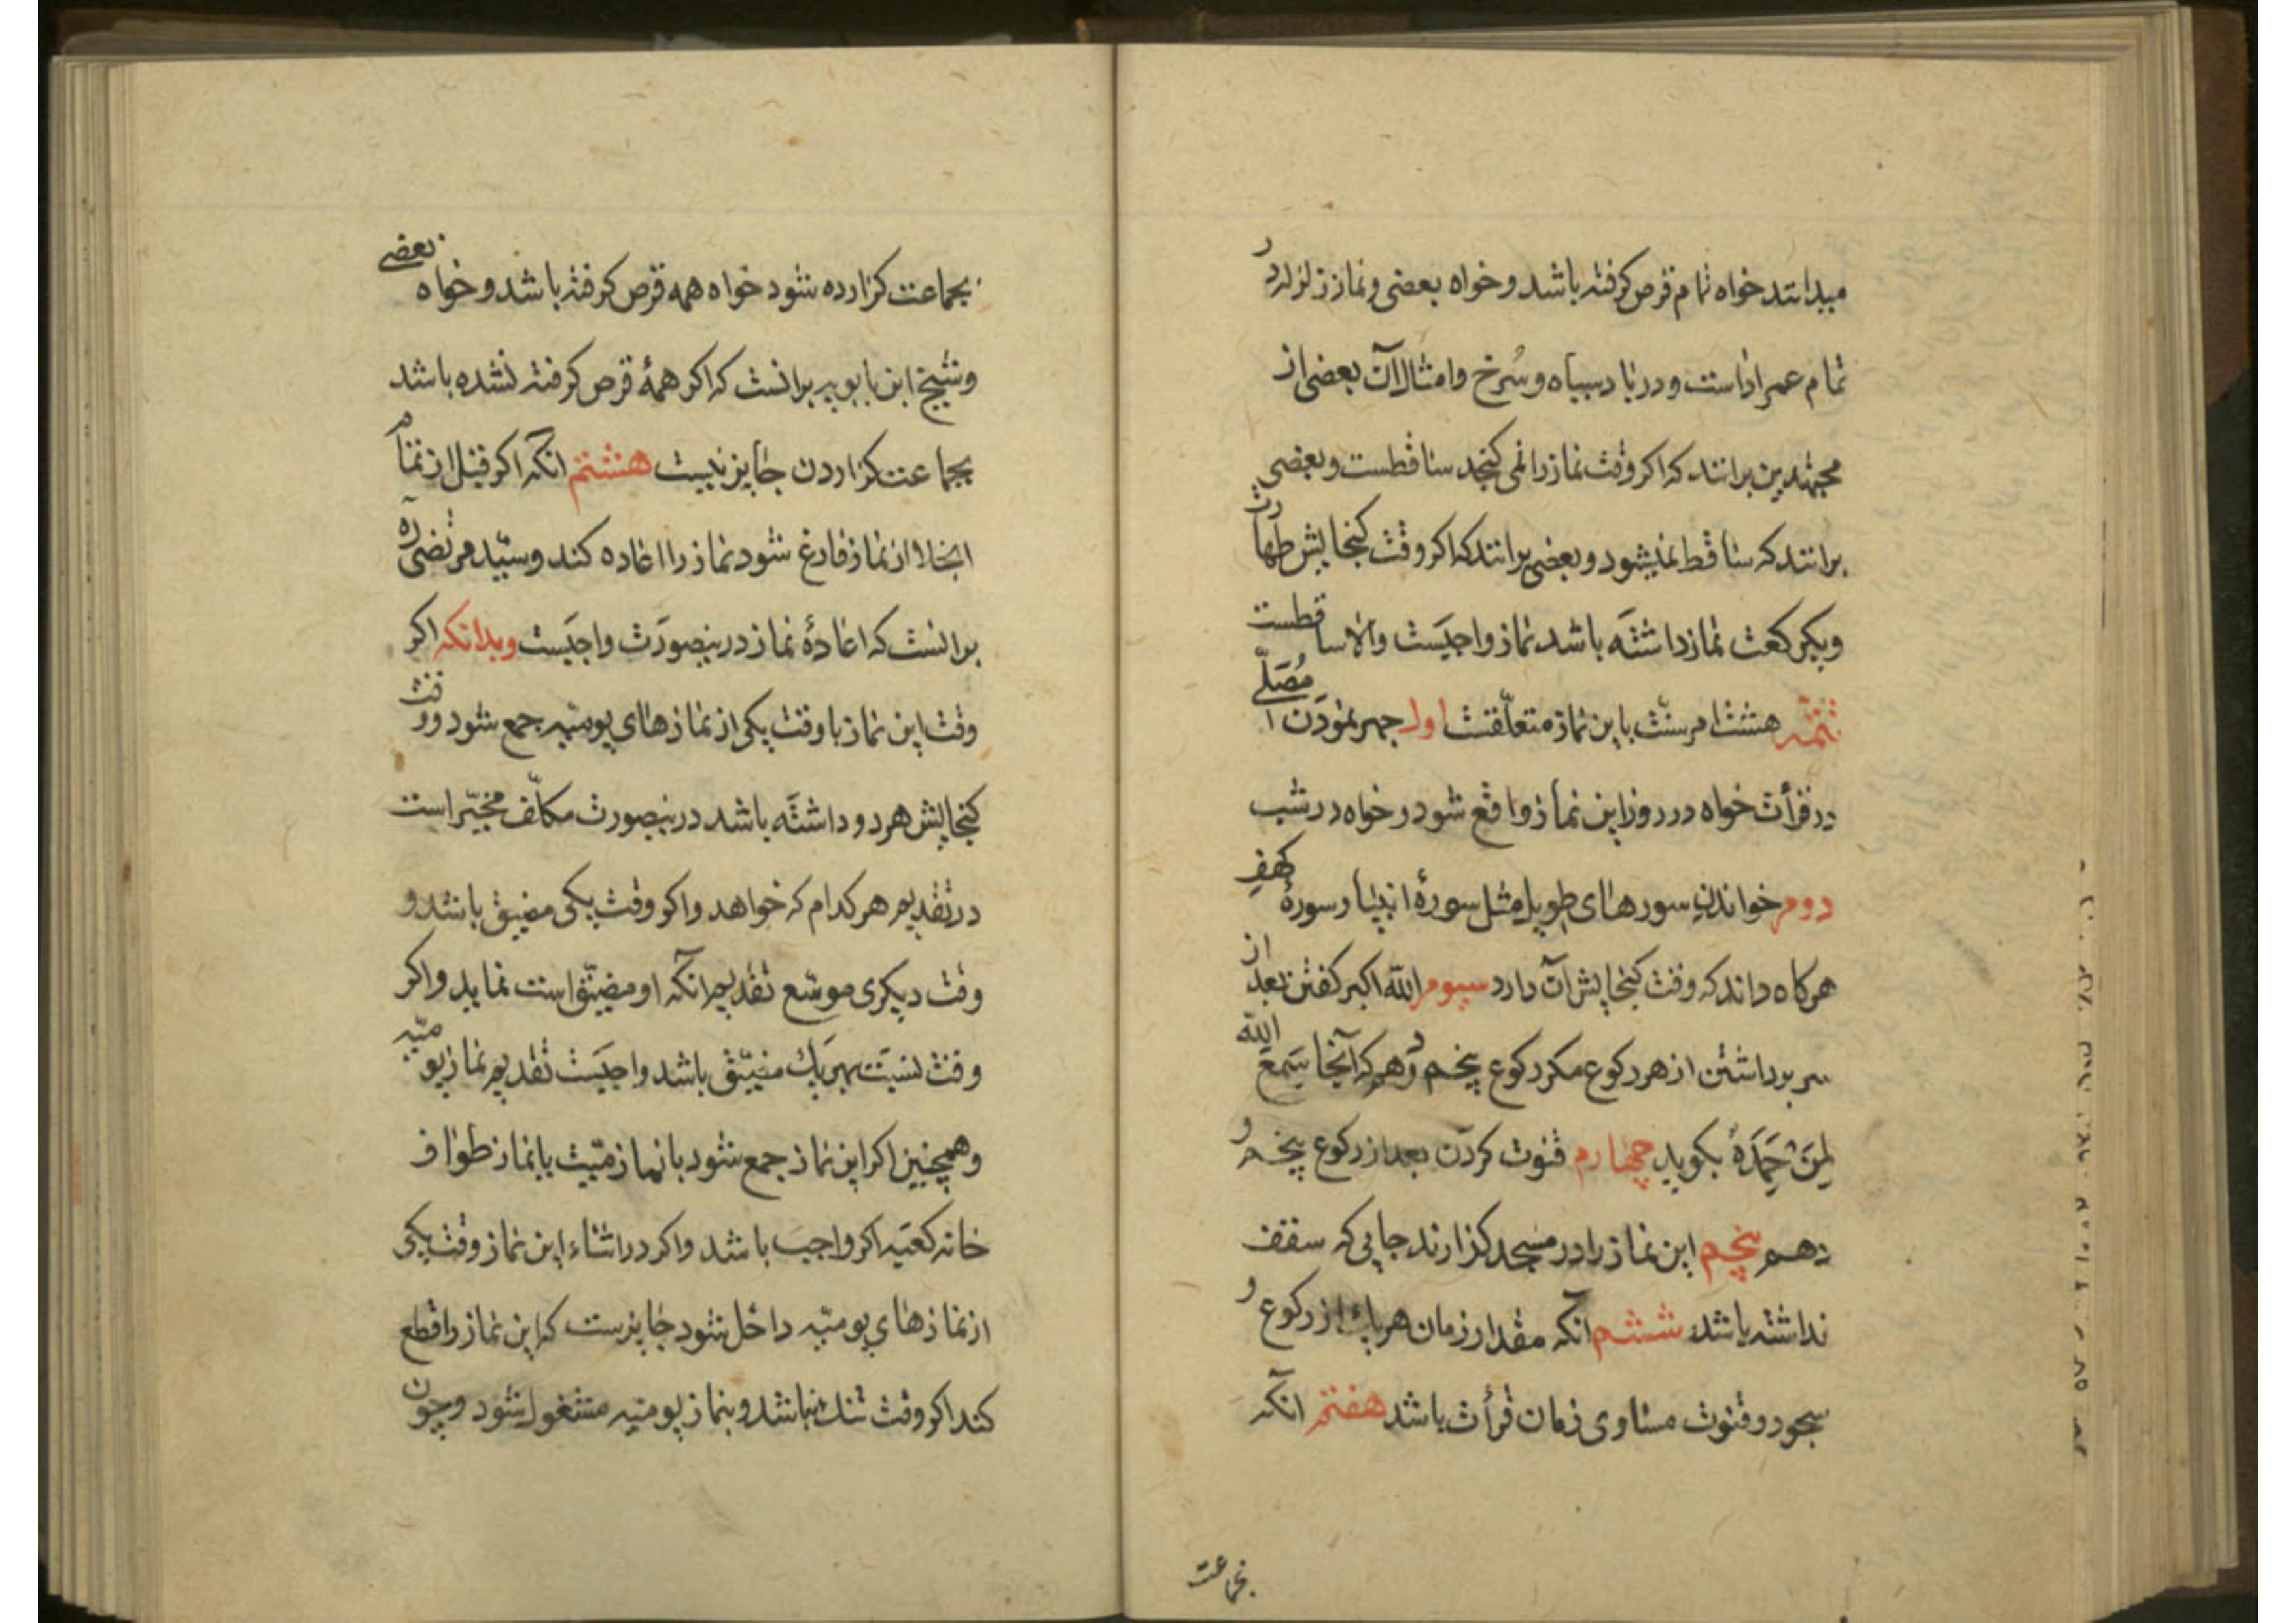 میدانند خواه تمام قرص کرفته باشد و خواه بعضی و نماز زلزله در
تمام عمر اداست و در باد سیاه و سُرخ و امثال آن بعضی از
مجتهدین برانند که اکر وقت نماز را نمی کنجد ساقطست و بعضی
برانند که ساقط نمیشود و بعضی برانند که اکر وقت کنجایش طهارت
ویکرکعت نماز داشته باشد نماز واجبست والا ساقطست
تتمّه هشت امر سنّت باین نماز متعلّقست اول جهر نمودن مُصَلّی
در قرأت خواه در روز این نماز واقع شود و خواه در شب
دوم خواندن سورهای طویل مثل سورهٔ انبیا و سورهٔ کهف
هرکاه داند که وقت کنجایش آن دارد سیوم الله اکبر کفتن بعد از
سر برداشتن از هر رکوع مکر رکوع پنجم و دهم که آنجا سَمِعَ الله
لِمَنْ حَمِدَهُ بکوید چهارم قنوت کردن بعد از رکوع پنجم و
دهم پنجم این نماز را در مسجد کزارند جایی که سقف
نداشته باشد ششم آنکه مقدار زمان هر یک از رکوع و
سجود و قنوت مساوی زمان قرأت باشد هفتم آنکه
بجماعت
بجماعت کزارده شود خواه همه قرص کرفته باشد و خواه بعضی
و شیخ ابن بابویه برانست که اکر همهٔ قرص کرفته نشده باشد
بجماعت کزاردن جایز نیست هشتم آنکه اکر قبل از تمام
انجلا از نماز فارغ شود نماز را اعاده کند و سیّد مرتضی ره
برانست که اعادهٔ نماز درینصورت واجبست وبدانکه اکر
وقت این نماز با وقت یکی از نمازهای یومیّه جمع شود و وقت
کنجایش هر دو داشته باشد درینصورت مکلّف مخیّر است
در تقدیم هر کدام که خواهد واکر وقت یکی مضیق باشد و
وقت دیکری موسّع تقدیم آنکه او مضیّق است نماید واکر
وقت نسبت بهریک مضیّق باشد واجبست تقدیم نماز یومیّه
وهمچنین اکر این نماز جمع شود با نماز میّت یا با نماز طواف
خانه کعبه اکر واجب باشد واکر در اثناء این نماز وقت یکی
از نمازهای یومیّه داخل شود جایزست که این نماز را قطع
کند اکر وقت تنک نباشد و بنماز یومیّه مشغول شود و چون